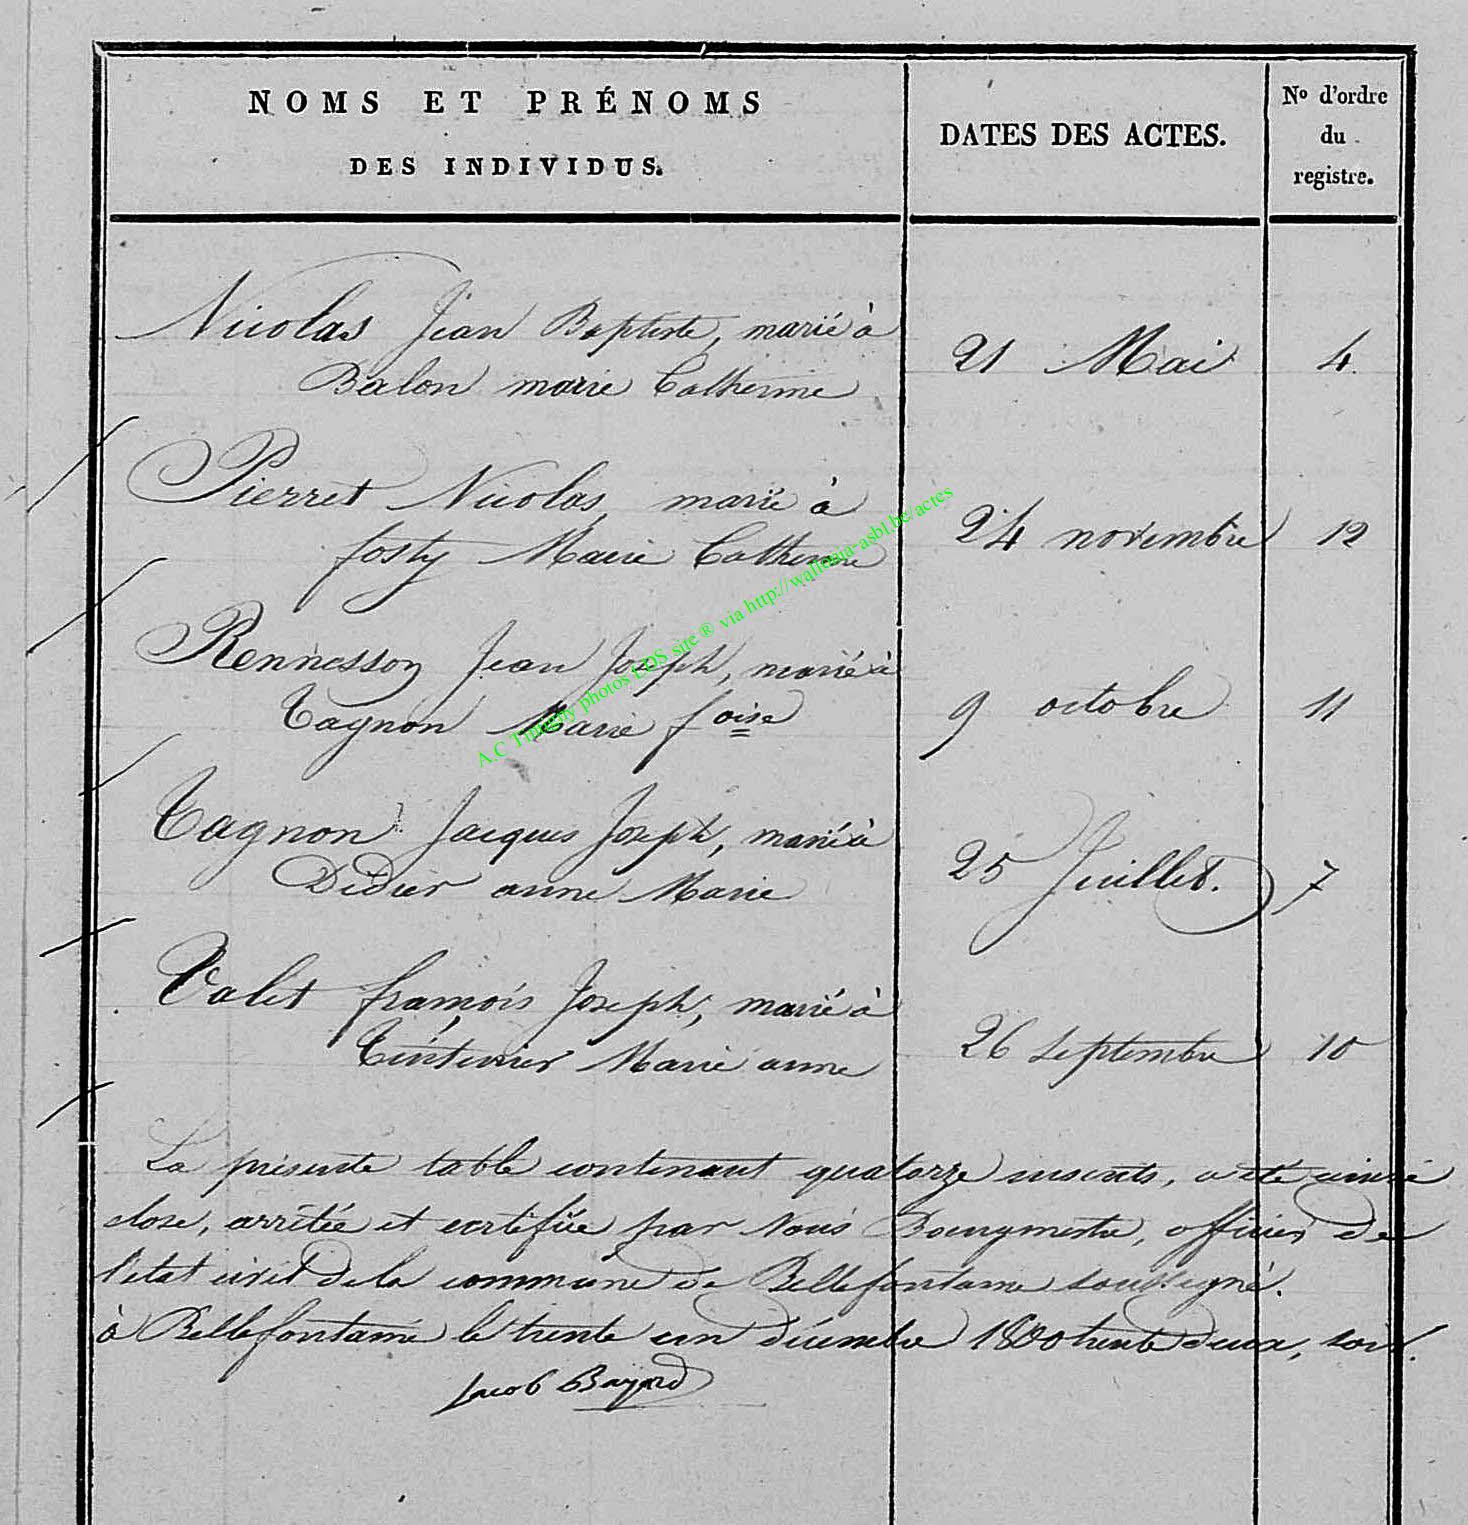 NOMS ET PRÉNOMS
DES INDIVIDUS.
DATES DES ACTES.
Nº d'ordre
du
registre.
Nicolas Jean Baptiste, marié à
Balon marie Catherine
21 Mai 4.
Pierret Nicolas, marié à
fosty Marie Catherine
24 novembre 12
Rennesson Jean Joseph, marié à
Tagnon Marie foise
9 octobre 11
Tagnon Jacques Joseph, marié à
Didier anne Marie
25 Juillet. 7
Valet françois Joseph, marié à
Marie anne
26 septembre 10
La présente table contenant quatorze inscrits, a été ainsi
close, arrêtée et certifiée par Nous Bourgmestre, officier de
l'etat civil de la commune de Bellefontaine soussigné.
à Bellefontaine le trente un décembre 1800 trente deux, soir.
Jacob Bayard
A.C Tintigny photos LDS site ® via http://wallonia-asbl.be/actes